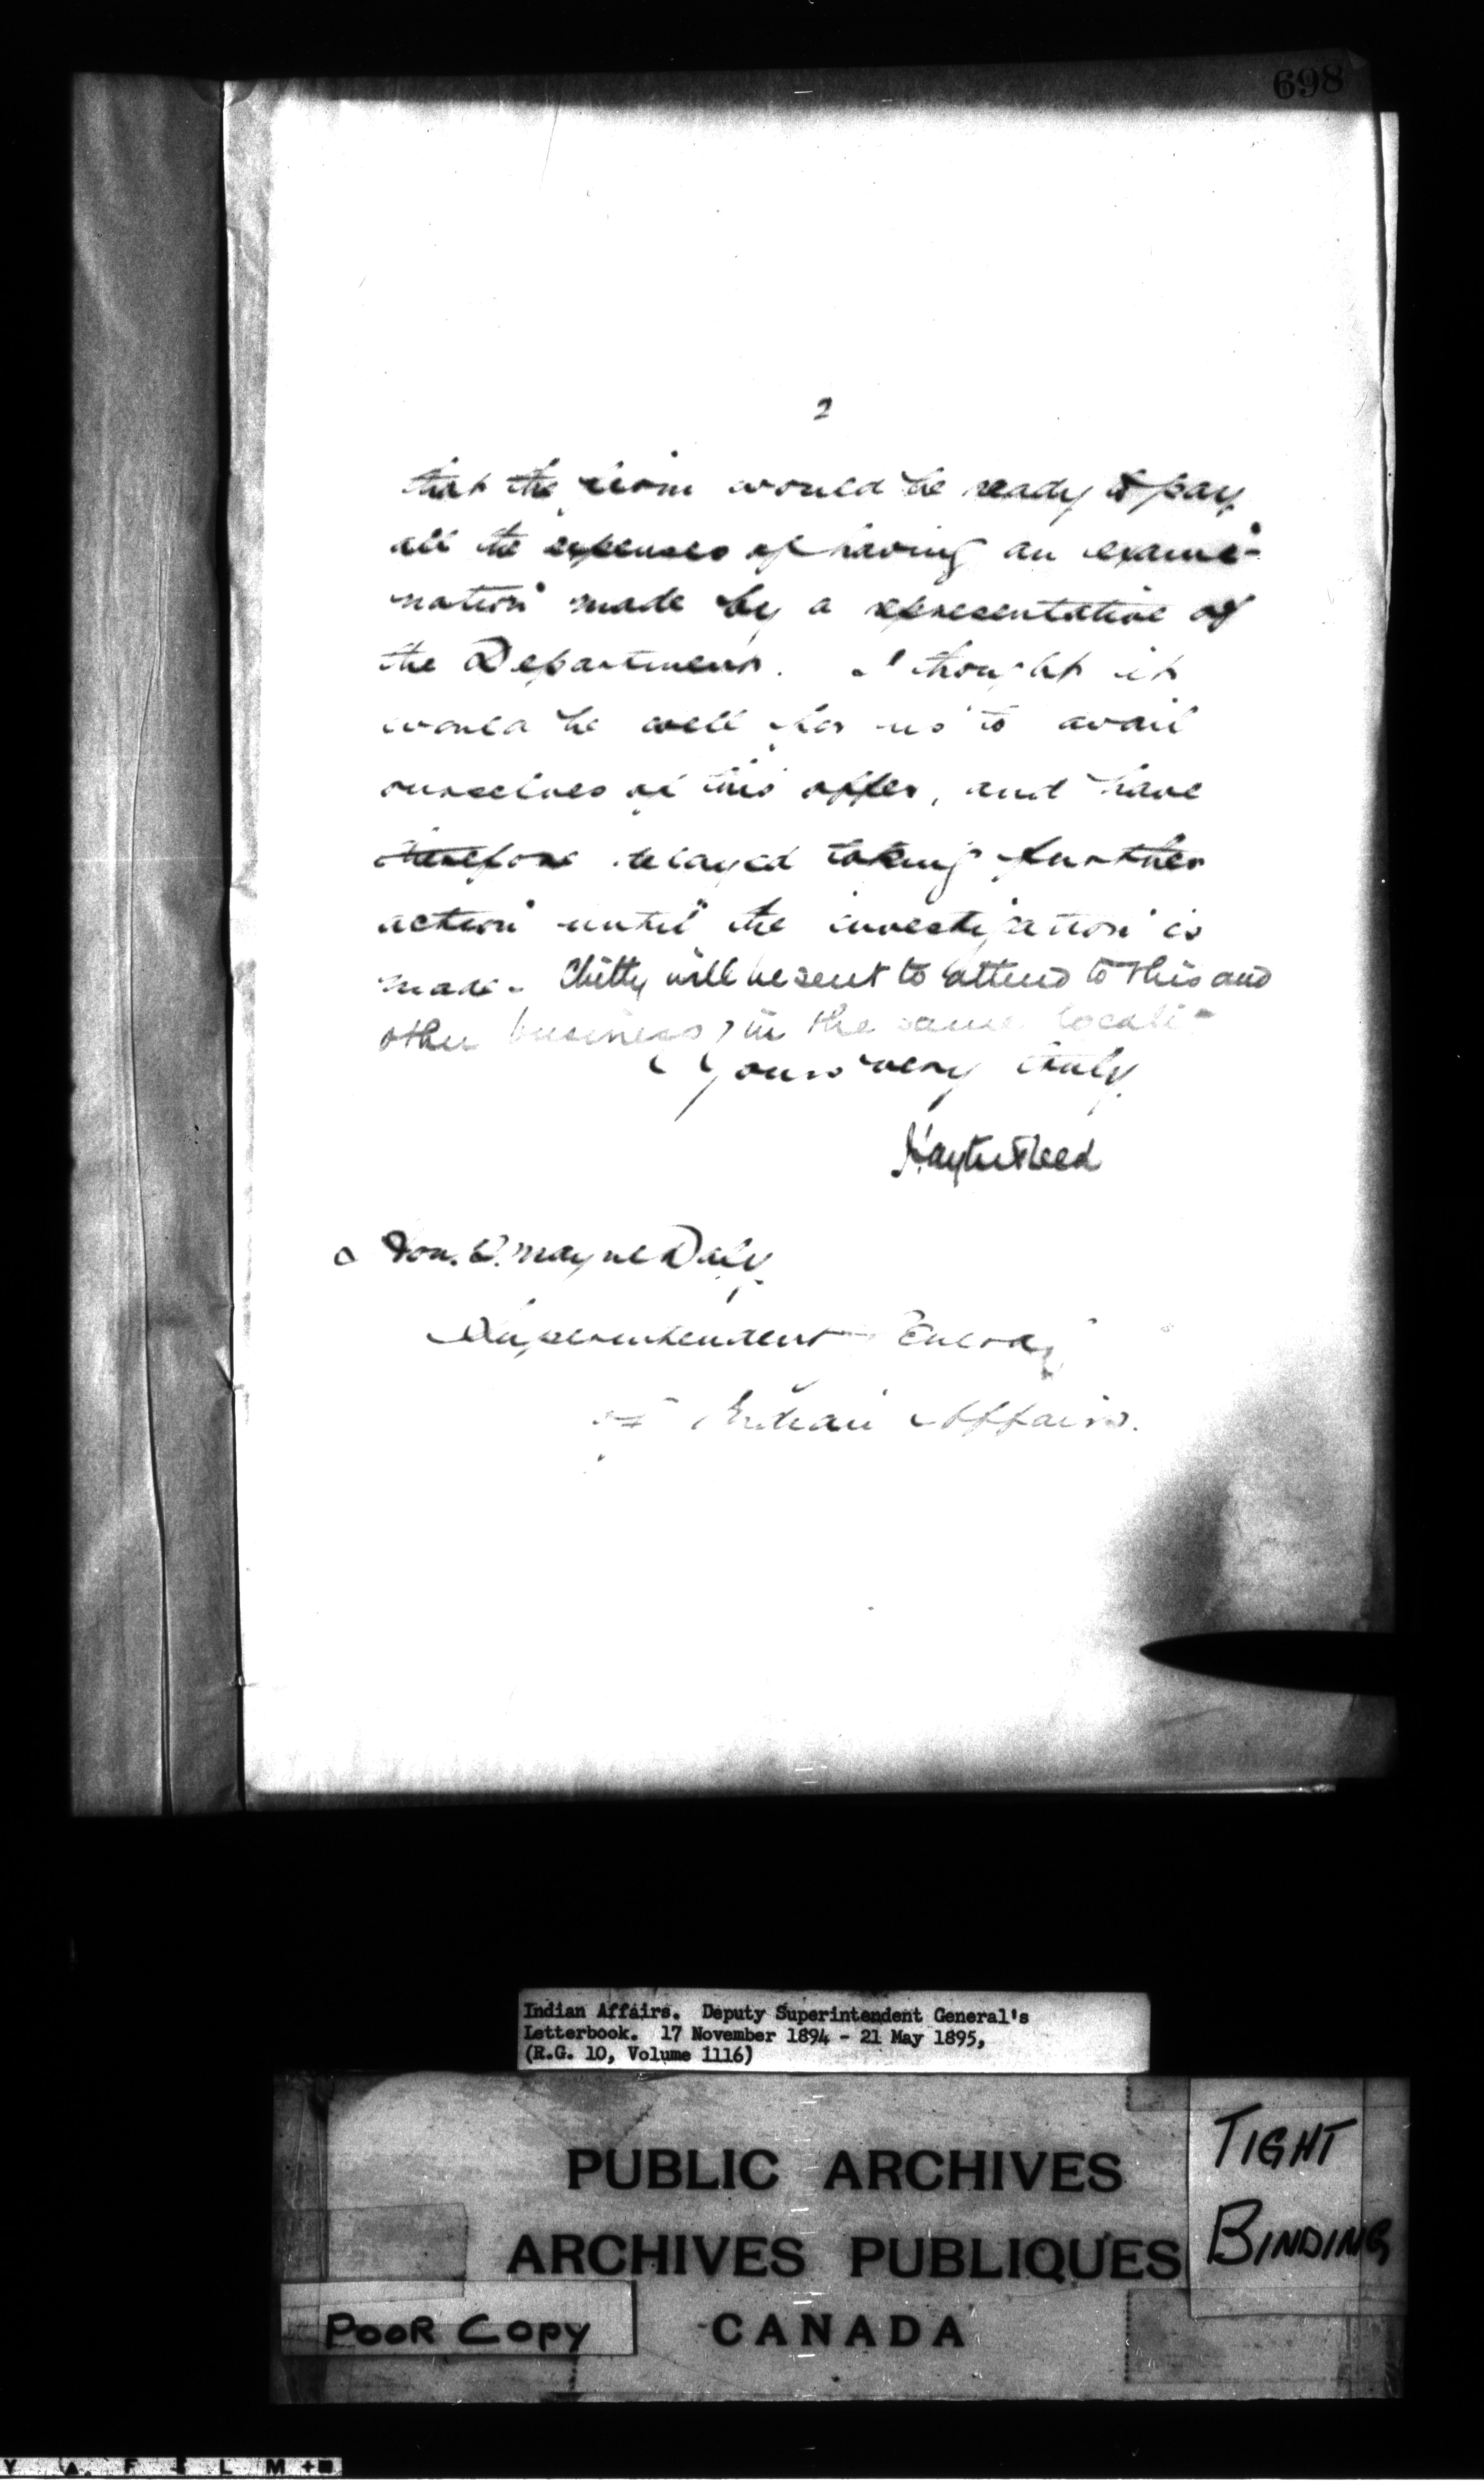 698
2
that the firm would be ready to pay
all the expenses of having an exami-
nation made by a representative of
the Department. I thought it
would be well for us to avail
ourselves of this offer, and have
therefore delayed taking further
action until the investigation is
made. Chitty will be sent to attend to this and
other business, in the same locali-
Yours very truly
Hayter Reed
Hon. T. Mayne Daly
Superintendent General
of Indian Affairs.
Indian Affairs. Deputy Superintendent General's
Letterbook. 17 November 1894 - 21 May 1895,
(R.G. 10, Volume 1116)
PUBLIC ARCHIVES
ARCHIVES PUBLIQUES
CANADA
TIGHT
BINDING
POOR COPY